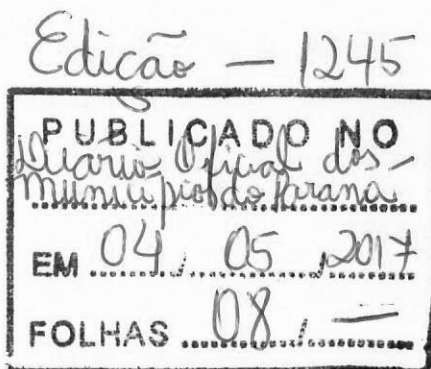 Edição - 1245
PUBLICADO NO
Diario Oficial dos
Municipios do Parana
EM 04 / 05 / 2017
FOLHAS 08 / —